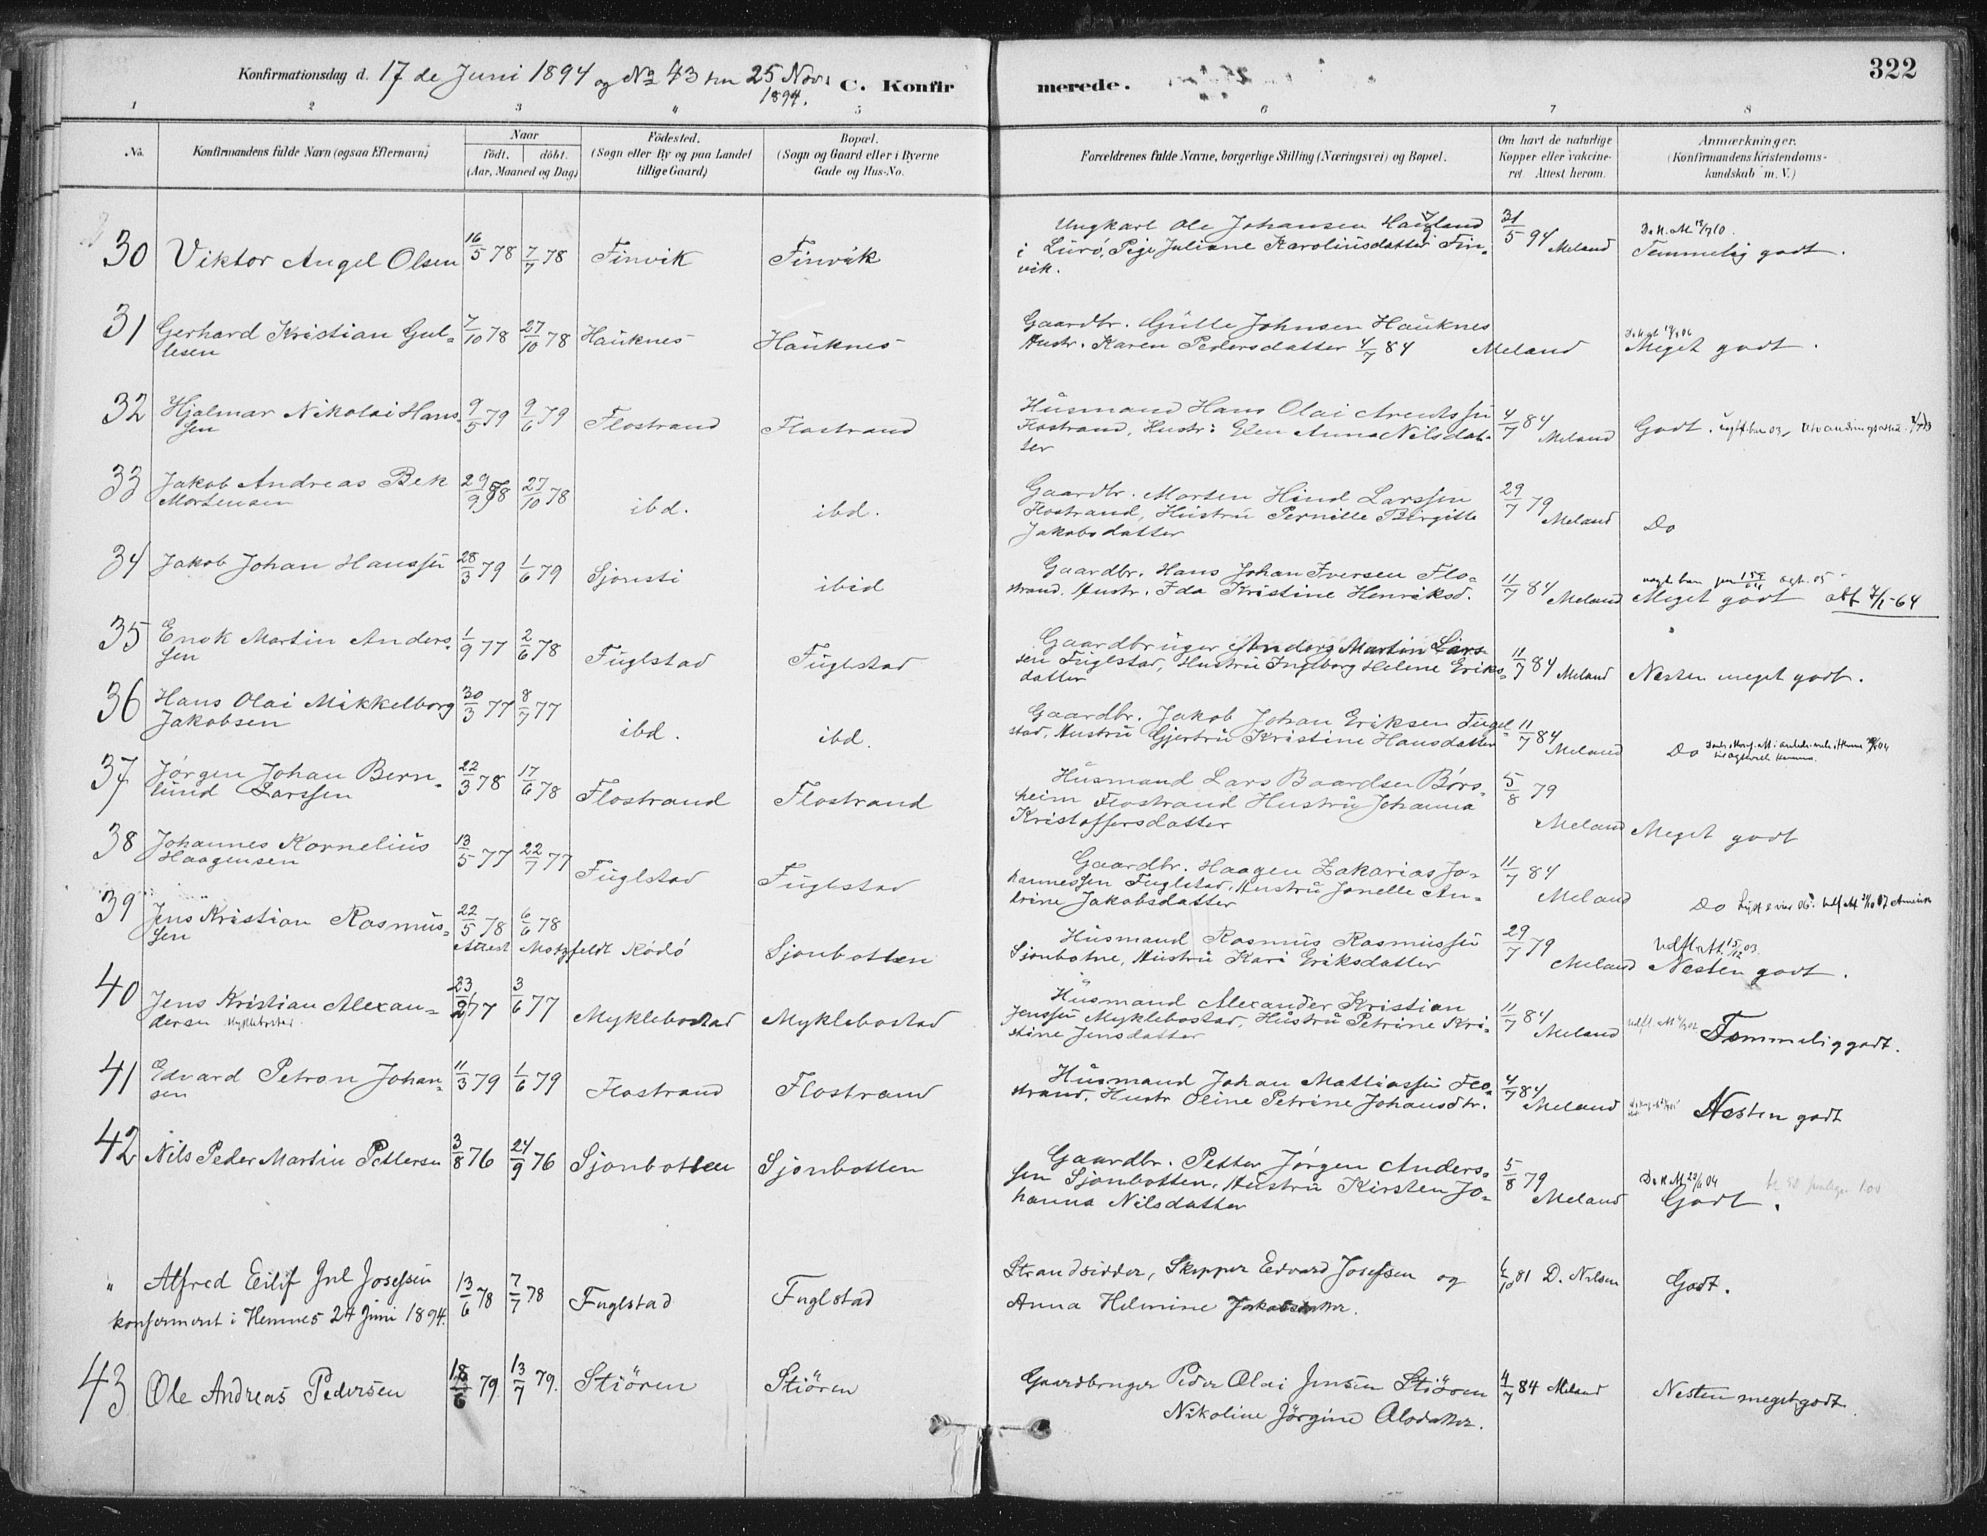 322
Konfirmationsdag d. 17 de Juni 1894 og No 43 den 25 Nov. 1894.
C. Konfirmerede.
1 2 3 4 5 6 7 8
No.
Konfirmandens fulde Navn (ogsaa Efternavn)
Naar
födt. döbt.
(Aar, Maaned og Dag)
Födested.
(Sogn eller By og paa Landet
tillige Gaard)
Bopæl.
(Sogn og Gaard eller i Byerne
Gade og Hus-No.
Forældrenes fulde Navne, borgerlige Stilling (Næringsvei) og Bopæl.
Om havt de naturlige
Kopper eller vakcine-
ret. Attest herom.
Anmærkninger.
(Konfirmandens Kristendoms-
kundskab m. V.)
30 Viktor Angel Olsen 16/5 78 7/7 78 Finvik Finvik
Ungkarl Ole Johansen Haugland
i Lurö, Pige Juliane Karoliusdatter Fin-
vik.
31/5 94 Meland
Temmelig godt.
31 Gerhard Kristian Gul-
lesen
7/10 78 27/10 78 Hauknes Hauknes
Gaardbr. Gulle Johnsen Hauknes
Hustr. Karen Pedersdatter 4/7 84 Meland
Meget godt.
32 Hjalmar Nikolai Hans-
sen
9/5 79 9/6 79 Flostrand Flostrand
Husmand Hans Olai Arentssen
Flostrand, Hustr: Elen Anna Nilsdat-
ter
4/7 84 Meland
Godt.
33 Jakob Andreas Bek
Mortensen
29/9 78 27/10 78 ibd. ibd.
Gaardbr. Morten Hind Larssen
Flostrand, Hustru Pernille Birgitte
Jakobsdatter
29/7 79 Meland
Do
34 Jakob Johan Hanssen 28/3 79 1/6 79 Sjonsti ibid
Gaardbr. Hans Johan Iversen Flo-
strand. Hustr. Ida Kristine Henriksd.
11/7 84 Meland
Meget godt
35 Enok Martin Anders-
sen
1/9 77 2/6 78 Fuglstad Fuglstad
Gaardbruger Anders Martin Lars-
sen Fuglstad, Hustru Ingeborg Helene Eriks-
datter
11/7 84 Meland
Nesten meget godt.
36 Hans Olai Mikkelborg
Jakobsen
30/3 77 8/7 77 ibd. ibd.
Gaardbr. Jakob Johan Eriksen Fugl-
stad, Hustru Gjertru Kristine Hansdatter
11/7 84 Meland
Do
37 Jørgen Johan Bern-
lund Larssen
22/3 78 17/6 78 Flostrand Flostrand
Husmand Lars Baardsen Børs-
heim Flostrand Hustru Johanna
Kristoffersdatter
5/8 79
Meland Meget godt
38 Johannes Kornelius
Haagensen
13/5 77 22/7 77 Fuglstad Fuglstad
Gaardbr. Haagen Zakarias Jo-
hannessen Fuglstad, Hustru Jonelle An-
trine Jakobsdatter
11/7 84
Meland
Do
39 Jens Kristian Rasmus-
sen
22/5 78 6/6 78
Attest Motzfeldt Rödö Sjonbotten
Husmand Rasmus Rasmussen
Sjonbotne, Hustru Kari Eriksdatter
29/7 79
Meland
Nesten godt.
40 Jens Kristian Alexan-
dersen Myklebostad
23/2 77 3/6 77 Myklebostad Myklebostad
Husmand Alexander Kristian
Jenssen Myklebostad, Hustru Petrine Kri-
stine Jensdatter
11/7 84
Meland
Temmelig godt.
41 Edvard Petron Johan-
sen
11/3 79 1/6 79 Flostrand Flostrand
Husmand Johan Mattiassen Flo-
strand, Hustr Oline Petrine Johansdtr.
4/7 84
Meland
Nesten godt
42 Nils Peder Martin Pettersen 3/8 76 24/9 76 Sjonbotten Sjonbotten
Gaardbr. Petter Jørgen Anders-
sen Sjonbotten, Hustru Kirsten Jo-
hanna Nilsdatter
5/8 79
Meland
Godt.
" Alfred Eilif Jul Josefsen
konfermeret i Hemnes 24 Juni 1894.
13/6 78 7/7 78 Fuglstad Fuglstad
Strandsidder, Skipper Edvard Josefsen og
Anna Helmine Jakobsdatter.
4/10 81 D. Nilsen
Godt.
43 Ole Andreas Pedersen 18/6 79 13/7 79. Stiören Stiören
Gaardbruger Peder Olai Jensen Stiören
Nikoline Jörgine Olsdatter.
4/7 84 Meland
Nesten meget godt.